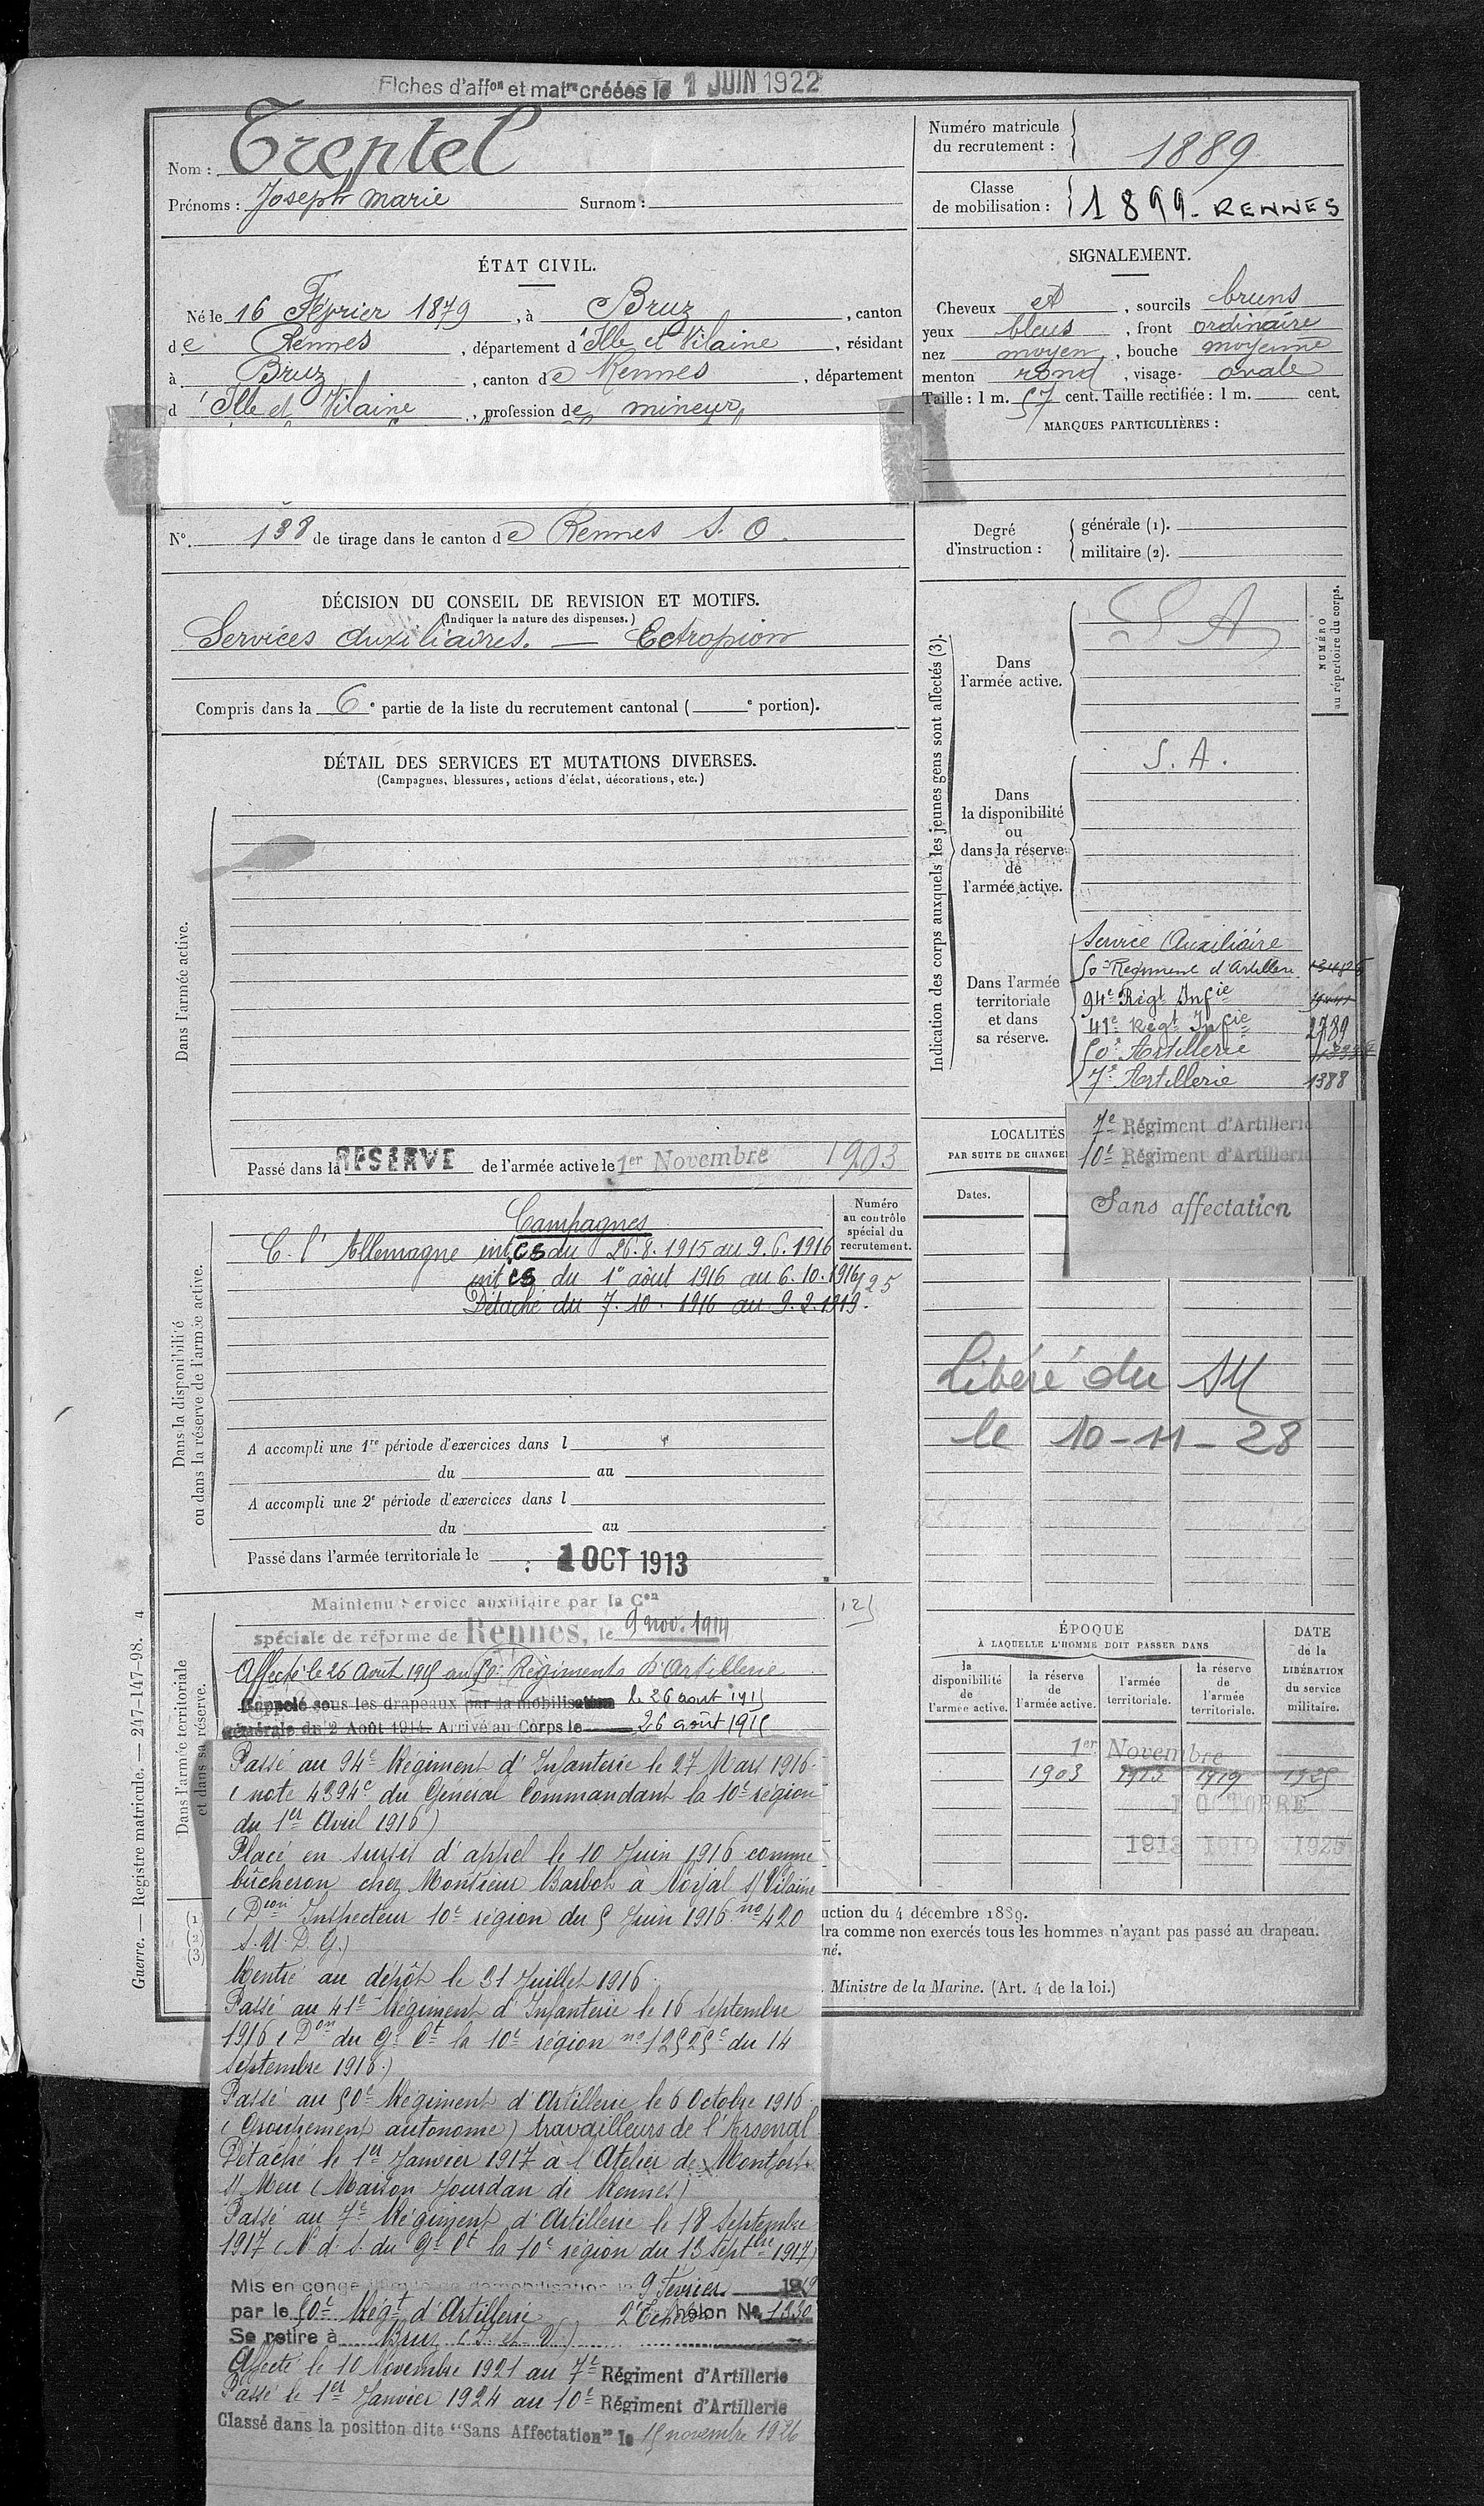 Fiches d'affon et matre créées le 1 JUIN 1922
Nom : Treptel
Prénoms : Joseph Marie Surnom :
Numéro matricule du recrutement : 1889
Classe de mobilisation : 1899 - RENNES
ÉTAT CIVIL.
Né le 16 Février 1879, à Bruz, canton
de Rennes, département d'Ille et Vilaine, résidant
à Bruz, canton de Rennes, département
d'Ille et Vilaine, profession de mineur
N° 138 de tirage dans le canton de Rennes S. O.
SIGNALEMENT.
Cheveux et, sourcils bruns
yeux bleus, front ordinaire
nez moyen, bouche moyenne
menton rond, visage ovale
Taille : 1 m. 57 cent. Taille rectifiée : 1 m. cent.
MARQUES PARTICULIÈRES :
Degré d'instruction : générale (1).
militaire (2).
DÉCISION DU CONSEIL DE REVISION ET MOTIFS.
(Indiquer la nature des dispenses.)
Services auxiliaires. — Ectropion
Compris dans la 6e partie de la liste du recrutement cantonal ( e portion).
DÉTAIL DES SERVICES ET MUTATIONS DIVERSES.
(Campagnes, blessures, actions d'éclat, décorations, etc.)
Dans l'armée active.
Passé dans la RESERVE de l'armée active le 1er Novembre 1903
Indication des corps auxquels les jeunes gens sont affectés (3).
NUMÉRO au répertoire du corps.
Dans l'armée active.
S A
Dans la disponibilité ou dans la réserve de l'armée active.
S. A.
Dans l'armée territoriale et dans sa réserve.
Service Auxiliaire
50e Régiment d'Artillerie
94e Régt Infie
41e Régt Infie 2789
50e Artillerie
7e Artillerie 1388
7e Régiment d'Artillerie
10e Régiment d'Artillerie
Sans affectation
LOCALITÉS
PAR SUITE DE CHANGE
Dates.
Libéré du SM
le 10-11-28
Dans la disponibilité ou dans la réserve de l'armée active.
Numéro au contrôle spécial du recrutement.
125
Campagnes
C. l'Allemagne int CS du 26.8.1915 au 9.6.1916
int CS du 1er août 1916 au 6.10.1916
Détaché du 7.10.1916 au 9.2.1919.
A accompli une 1re période d'exercices dans l
du au
A accompli une 2e période d'exercices dans l
du au
Passé dans l'armée territoriale le 1 OCT 1913
Dans l'armée territoriale et dans sa réserve.
125
Maintenu Service auxiliaire par la Con
spéciale de réforme de Rennes, le 9 nov. 1914
Affecté le 26 Août 1915 au 50e Régiment d'Artillerie
Rappelé sous les drapeaux par la mobilisation le 26 août 1915
générale du 2 Août 1914. Arrivé au Corps le 26 août 1915
Passé au 94e Régiment d'Infanterie le 27 Mars 1916
(note 4394c du Général Commandant la 10e région
du 1er Avril 1916)
Placé en sursis d'appel le 10 Juin 1916 comme
bûcheron chez Monsieur Barbot à Noyal s/Vilaine
(Dion Inspecteur 10e région du 5 Juin 1916 no 420
Rentré au dépôt le 31 Juillet 1916.
Passé au 41e Régiment d'Infanterie le 16 Septembre
1916 (Don du Gl Ct la 10e région no 12525c du 14
septembre 1916.)
Passé au 50e Régiment d'Artillerie le 6 Octobre 1916
(Groupement autonome) travailleurs de l'Arsenal
Détaché le 1er Janvier 1917 à l'Atelier de Montfort
s/ Meu (Maison Jourdan de Rennes)
Passé au 7e Régiment d'Artillerie le 18 Septembre
1917 (N. d. S. du Gl Ct la 10e région du 13 Septbre 1917)
Mis en congé illimité de démobilisation le 9 Février 1919
par le 50e Régt d'Artillerie 2e Echelon No 1330
Se retire à Bruz (I. et V.)
Affecté le 10 Novembre 1921 au 7e Régiment d'Artillerie
Passé le 1er Janvier 1924 au 10e Régiment d'Artillerie
Classé dans la position dite "Sans Affectation" le 15 novembre 1926
ÉPOQUE
À LAQUELLE L'HOMME DOIT PASSER DANS
la disponibilité de l'armée active.
la réserve de l'armée active.
l'armée territoriale.
la réserve de l'armée territoriale.
DATE de la LIBÉRATION du service militaire.
1er Novembre
1903 1913 1919 1925
1 OCTOBRE
1913 1919 1925
(1)
(2)
(3)
uction du 4 décembre 1889.
dra comme non exercés tous les hommes n'ayant pas passé au drapeau.
né.
. Ministre de la Marine. (Art. 4 de la loi.)
Guerre. — Registre matricule. — 247-147-98. 4